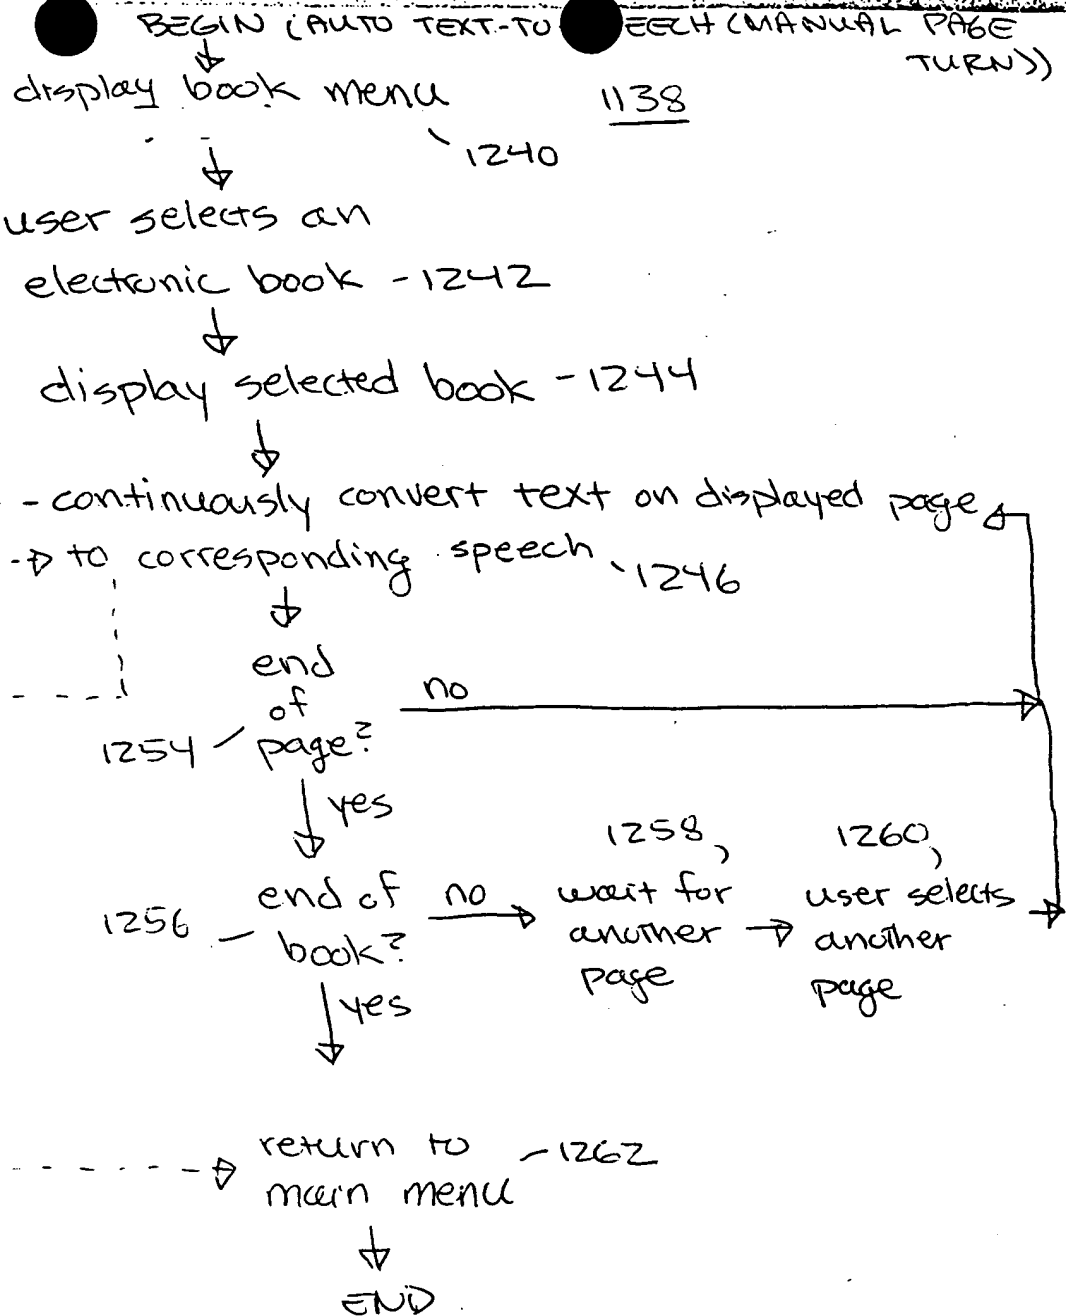 BEGIN (AUTO TEXT-TO EECH (MANUAL PAGE
TURN))
display book menu
1138
1240
user selects an
electronic book - 1242
display selected book - 1244
- continuously convert text on displayed page
to corresponding speech
1246
end
of
page?
no
1254
yes
1258,
1260,
end of
book?
no
1256
wait for
another
page
user selects
another
page
yes
return to
main menu
1262
END